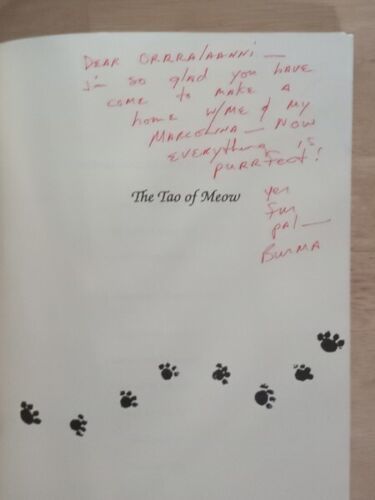 DEAR ORRRalaanni —
I'm so glad you have
come to make a
home w/me & my
MARCOLINA — NOW
EVERYthing is
purrfect!
The Tao of Meow
yer
fur
pal —
BURMA